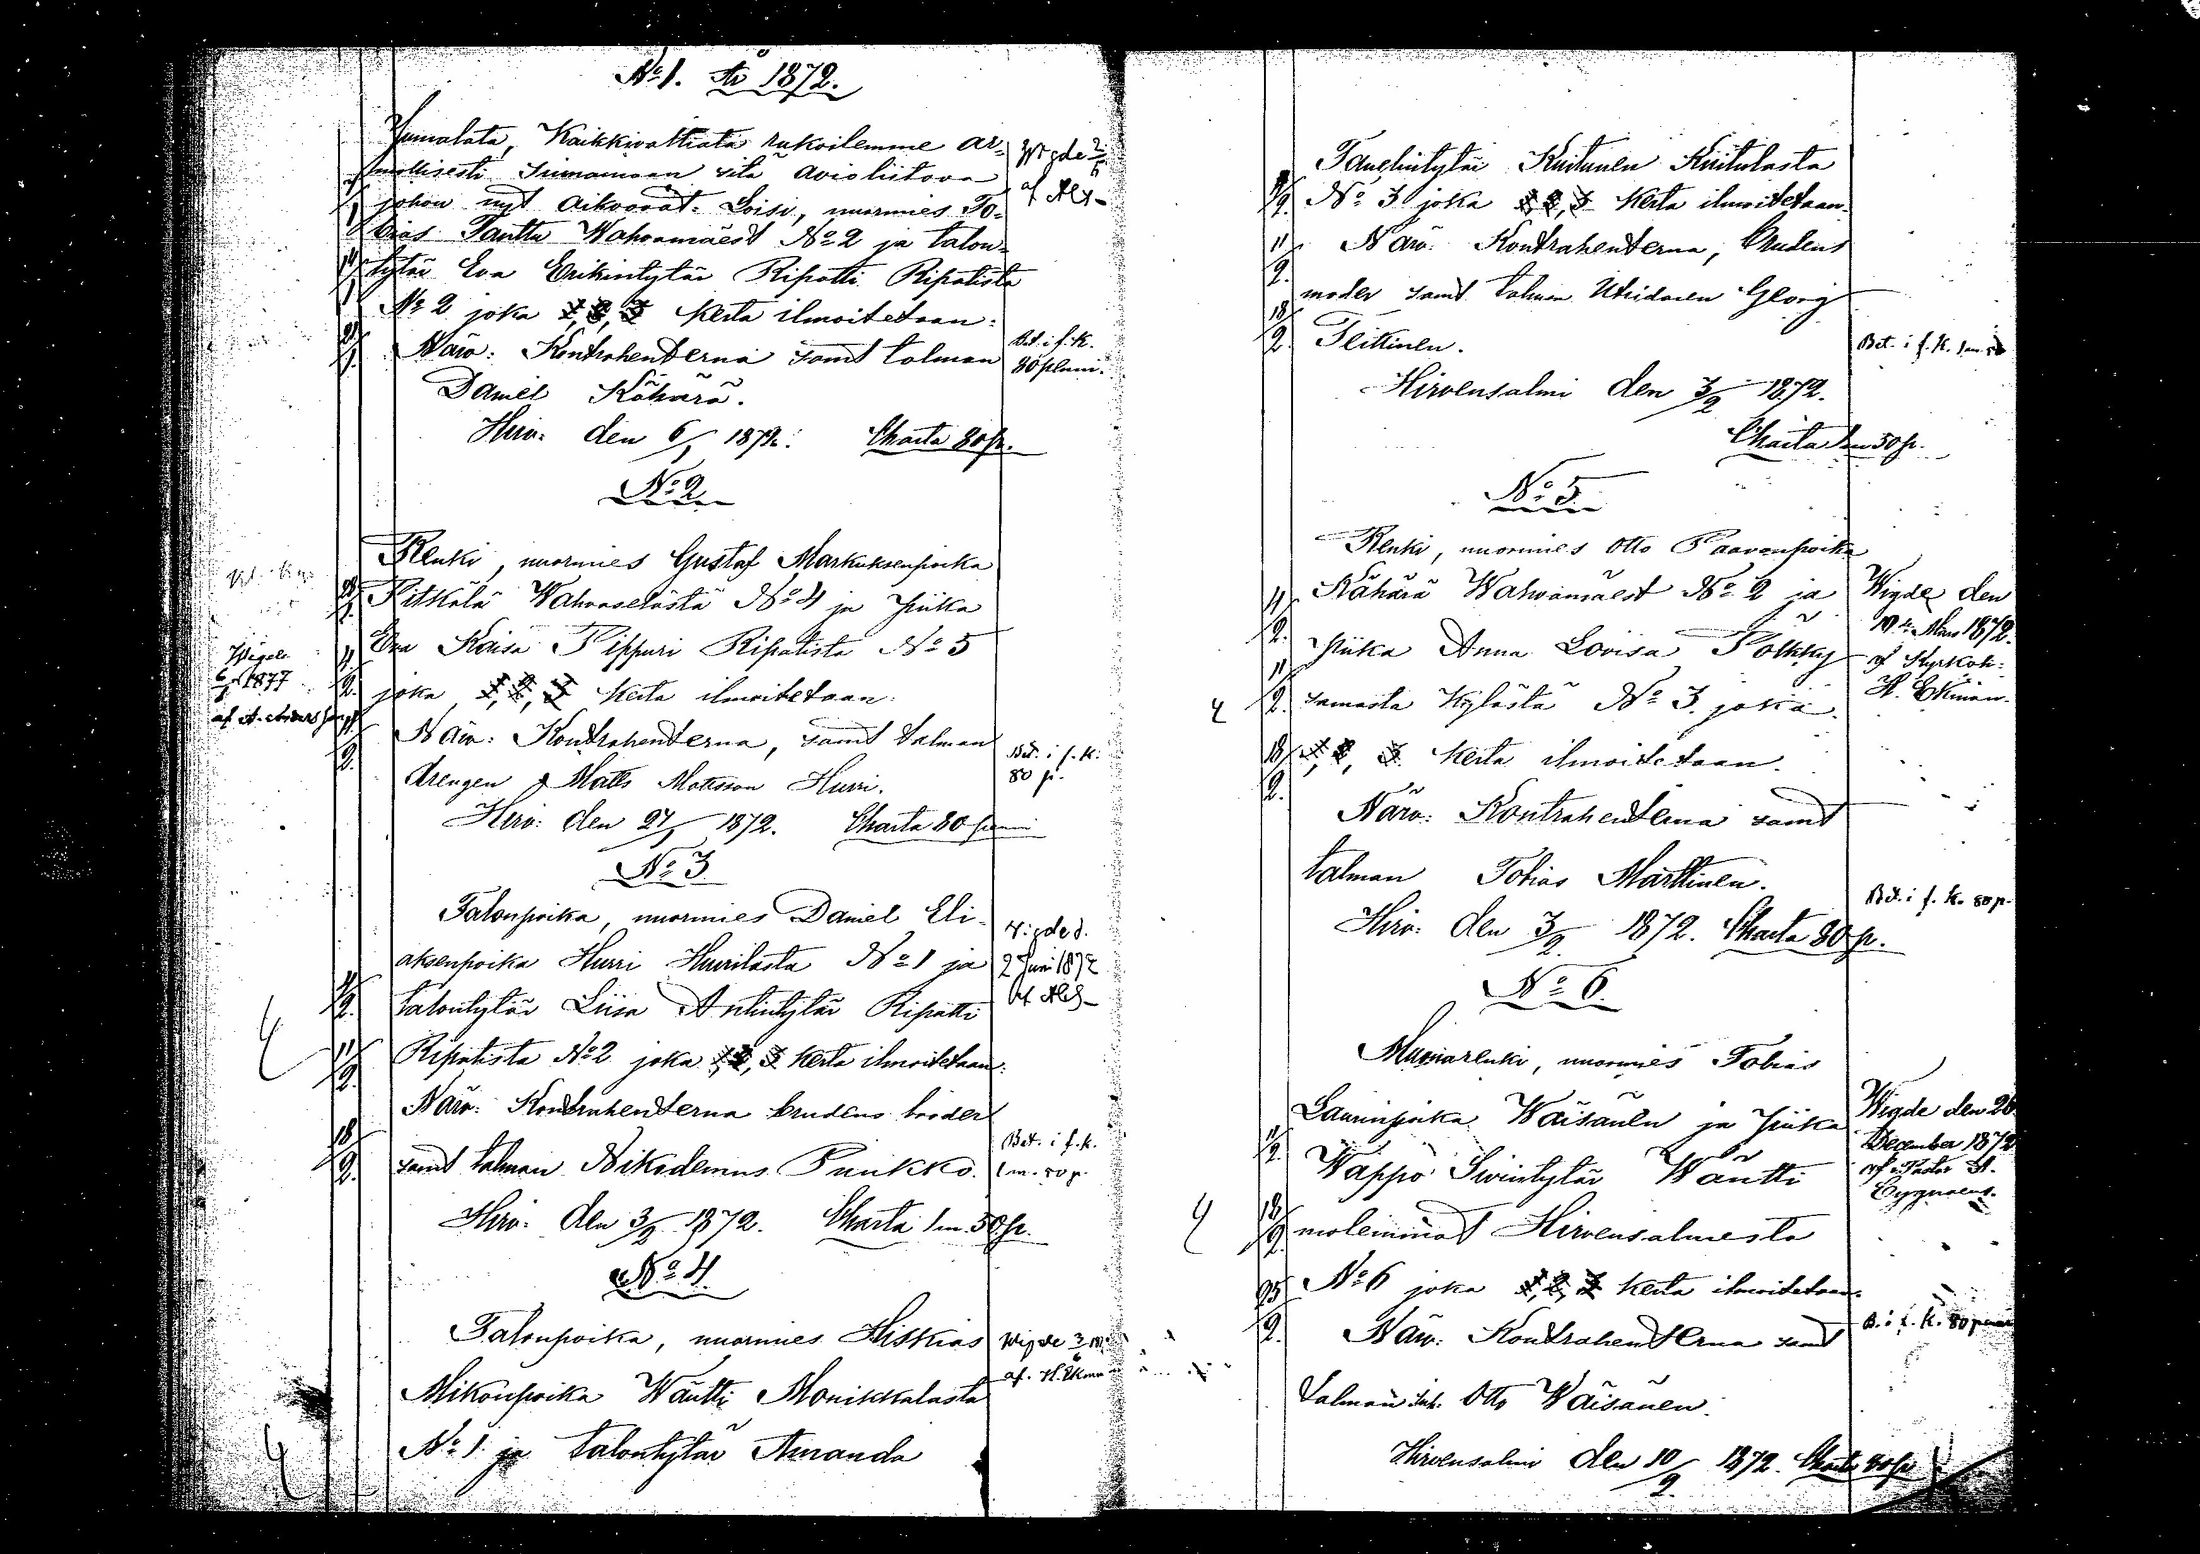 No 1. År 1872.
Jumalata, Kaikkivaltiata rukoilemme ar-
mollisesti siunaamaan sitä avioliitova
johon nyt aikovat. Loisi, nuormies To-
bias Tanttu Wahvamäest No 2 ja talon-
tytär Eva Erikintytär Ripatti Ripatista
No 2 joka 1, 2, 3 kerta ilmoitetaan:
Närv: Kontrahenterna samt talman
Daniel Kähärä.
Hirv: den 6/1 1872. Charta 80 p.
Wigde
af
Bet. i f. k.
80 penni.
No 2
Renki, nuormies Gustaf Markuksenpoika
Pitkälä Wahvaselästä No 4 ja Piika
Eva Kaisa Pippuri Ripatista No 5
joka 1, 2, 3 kerta ilmoitetaan.
Närv: Kontrahenterna, samt talman
drengen Matts Mattsson Hurri.
Hirv: den 27/1 1872. Charta 80 penni
Wigde
1877
af A.
Bet. i f. k.
80 p.
No 3
Talonpoika, nuormies Daniel Eli-
aksenpoika Hurri Hurrilasta No 1 ja
talontytär Liisa Antintytär Ripatti
Ripatista No 2 joka 1, 2, 3 kerta ilmoitetaan.
Närv: Kontrahenterna brudens broder
samt talman Nikodemus Puukko.
Hirv: den 3/2 1872. Charta 1 m. 50 p.
Wigde d.
2 Juni 1872
af
Bet. i f. k.
1 m. 50 p.
No 4
Talonpoika, nuormies Hiskias
Mikonpoika Wäntti Monikkalasta
No 1 ja talontytär Amanda
Wigde 3
af. H. Ekman
Tanelintytär Kuitunen Kuitulasta
No 3 joka 1, 2, 3 kerta ilmoitetaan.
Närv: Kontrahenterna, Brudens
moder samt talman Utridaren Georg
Teittinen.
Hirvensalmi den 3/2 1872.
Charta 1 m 50 p.
Bet. i f. k. 1 m 50
No 5
Renki, nuormies Otto Paavonpoika
Kähärä Wahvamäest No 2 ja
Piika Anna Lovisa Pölkky
samasta kylästä No 3. joka
1, 2, 3 kerta ilmoitetaan.
Närv: Kontrahenterna samt
talman Tobias Marttinen.
Hirv: den 3/2 1872. Charta 80 p.
Wigde den
Mars 1872.
af Kyrkoh:
H. Ekman.
Bet. i f. k. 80 p.
No 6.
Muonarenki, nuormies Tobias
Laurinpoika Wäisänen ja Piika
Wappo Wäntti
molemmat Hirvensalmesta
No 6 joka 1, 2, 3 kerta ilmoitetaan.
Närv: Kontrahenterna samt
talman Otto Wäisänen.
Hirvensalmi den 10/2 1872. Charta 80 p
Wigde den 26
December 1872
af Pastor A.
Cygnaeus.
B. i f. k. 80 penni